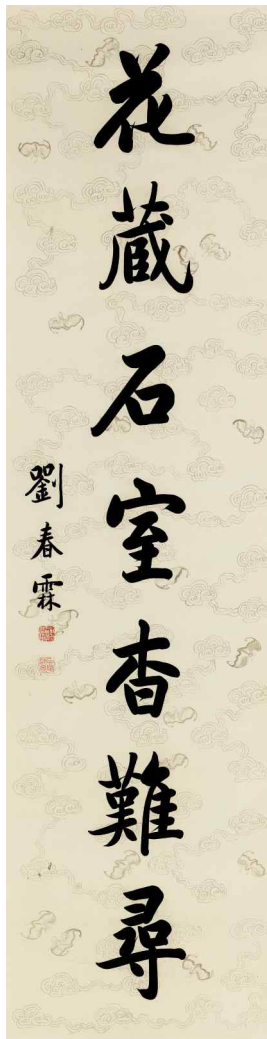 花蔵石室杳難尋
劉春霖